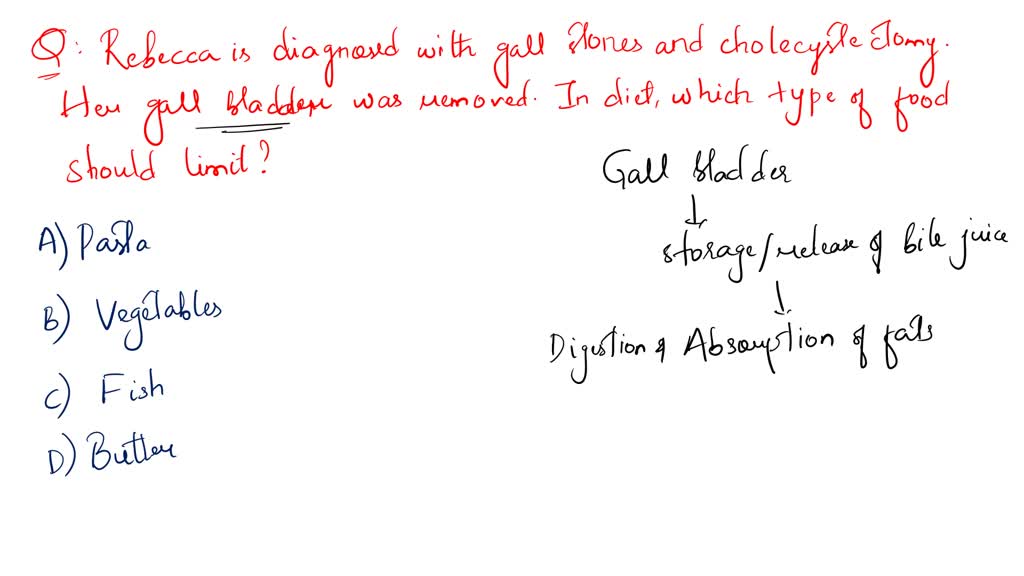 Q: Rebecca is diagnosed with gall stones and cholecystectomy.
Her gall bladder was removed. In diet, which type of food
should limit?
Gall bladder
↓
storage/release of bile juice
↓
Digestion & Absorption of fats
A) Pasta
B) Vegetables
C) Fish
D) Butter